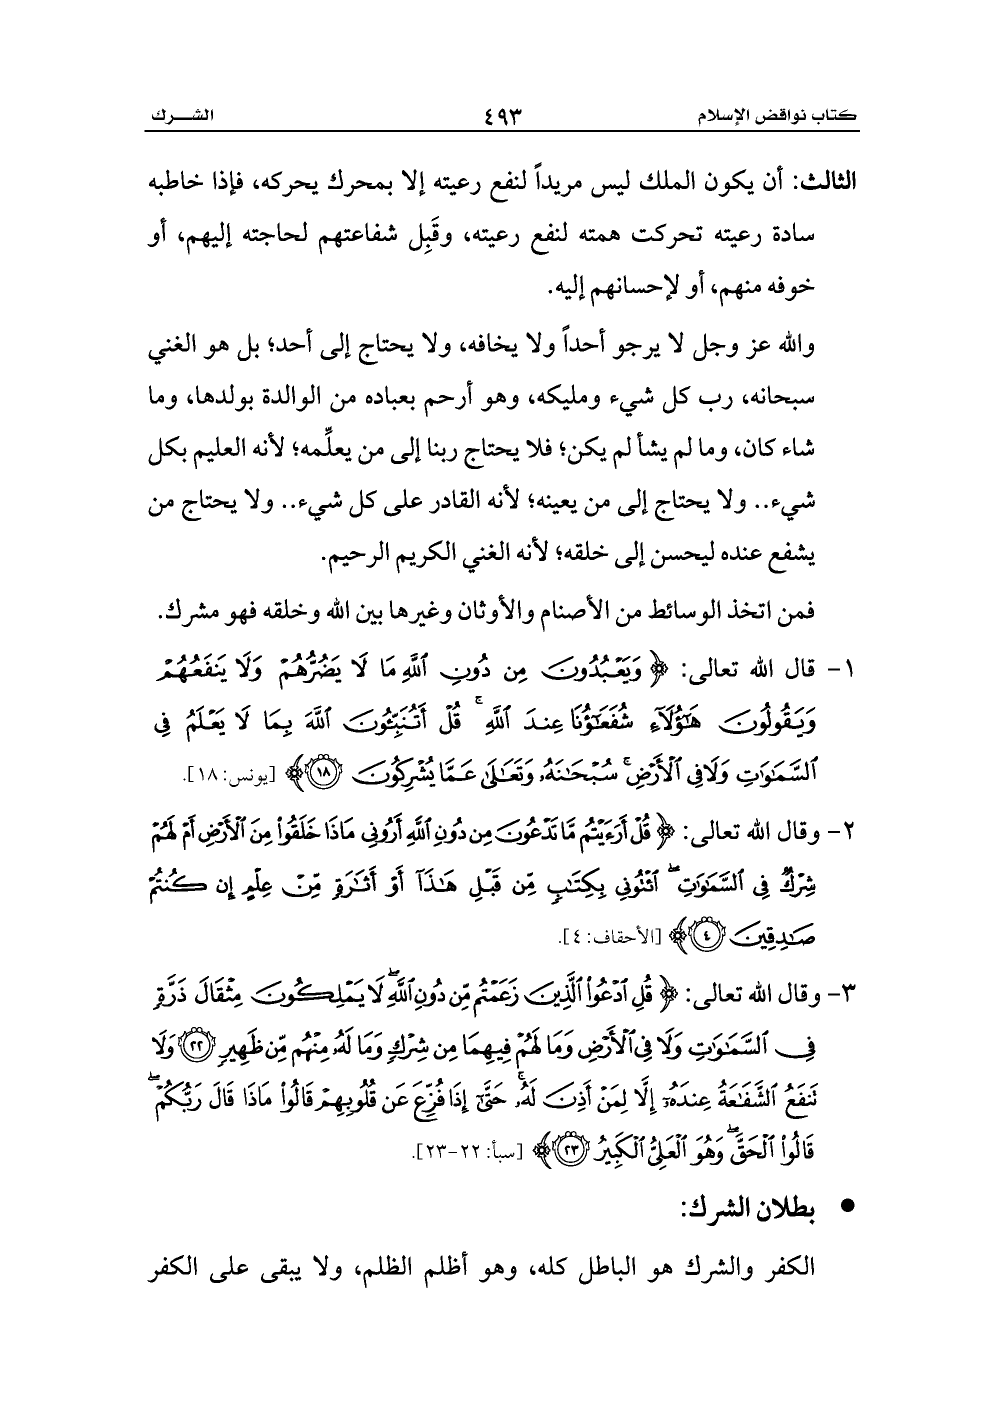 كتاب نواقض الإسلام ٤٩٣ الشـــرك
الثالث: أن يكون الملك ليس مريداً لنفع رعيته إلا بمحرك يحركه، فإذا خاطبه
سادة رعيته تحركت همته لنفع رعيته، وقَبِل شفاعتهم لحاجته إليهم، أو
خوفه منهم، أو لإحسانهم إليه.
والله عز وجل لا يرجو أحداً ولا يخافه، ولا يحتاج إلى أحد؛ بل هو الغني
سبحانه، رب كل شيء ومليكه، وهو أرحم بعباده من الوالدة بولدها، وما
شاء كان، وما لم يشأ لم يكن؛ فلا يحتاج ربنا إلى من يعلِّمه؛ لأنه العليم بكل
شيء.. ولا يحتاج إلى من يعينه؛ لأنه القادر على كل شيء.. ولا يحتاج من
يشفع عنده ليحسن إلى خلقه؛ لأنه الغني الكريم الرحيم.
فمن اتخذ الوسائط من الأصنام والأوثان وغيرها بين الله وخلقه فهو مشرك.
١- قال الله تعالى: ﴿وَيَعْبُدُونَ مِن دُونِ ٱللَّهِ مَا لَا يَضُرُّهُمْ وَلَا يَنفَعُهُمْ
وَيَقُولُونَ هَٰٓؤُلَآءِ شُفَعَٰٓؤُنَا عِندَ ٱللَّهِ ۚ قُلْ أَتُنَبِّـُٔونَ ٱللَّهَ بِمَا لَا يَعْلَمُ فِى
ٱلسَّمَٰوَٰتِ وَلَا فِى ٱلْأَرْضِ ۚ سُبْحَٰنَهُۥ وَتَعَٰلَىٰ عَمَّا يُشْرِكُونَ ١٨﴾ [يونس: ١٨].
٢- وقال الله تعالى: ﴿قُلْ أَرَءَيْتُم مَّا تَدْعُونَ مِن دُونِ ٱللَّهِ أَرُونِى مَاذَا خَلَقُوا۟ مِنَ ٱلْأَرْضِ أَمْ لَهُمْ
شِرْكٌ فِى ٱلسَّمَٰوَٰتِ ۖ ٱئْتُونِى بِكِتَٰبٍ مِّن قَبْلِ هَٰذَآ أَوْ أَثَٰرَةٍ مِّنْ عِلْمٍ إِن كُنتُمْ
صَٰدِقِينَ ٤﴾ [الأحقاف: ٤].
٣- وقال الله تعالى: ﴿قُلِ ٱدْعُوا۟ ٱلَّذِينَ زَعَمْتُم مِّن دُونِ ٱللَّهِ ۖ لَا يَمْلِكُونَ مِثْقَالَ ذَرَّةٍ
فِى ٱلسَّمَٰوَٰتِ وَلَا فِى ٱلْأَرْضِ وَمَا لَهُمْ فِيهِمَا مِن شِرْكٍ وَمَا لَهُۥ مِنْهُم مِّن ظَهِيرٍ ٢٢ وَلَا
تَنفَعُ ٱلشَّفَٰعَةُ عِندَهُۥٓ إِلَّا لِمَنْ أَذِنَ لَهُۥ ۚ حَتَّىٰٓ إِذَا فُزِّعَ عَن قُلُوبِهِمْ قَالُوا۟ مَاذَا قَالَ رَبُّكُمْ ۖ
قَالُوا۟ ٱلْحَقَّ ۖ وَهُوَ ٱلْعَلِىُّ ٱلْكَبِيرُ ٢٣﴾ [سبأ: ٢٢-٢٣].
• بطلان الشرك:
الكفر والشرك هو الباطل كله، وهو أظلم الظلم، ولا يبقى على الكفر